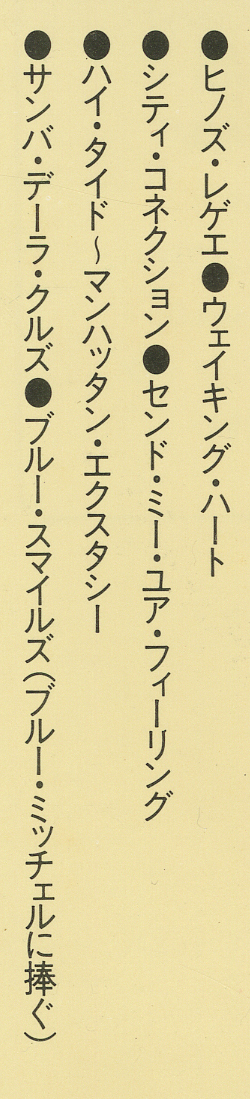 ●ヒノズ・レゲエ●ウェイキング・ハート
●シティ・コネクション●センド・ミー・ユア・フィーリング
●ハイ・タイド~マンハッタン・エクスタシー
●サンバ・デーラ・クルズ●ブルー・スマイルズ(ブルー・ミッチェルに捧ぐ)